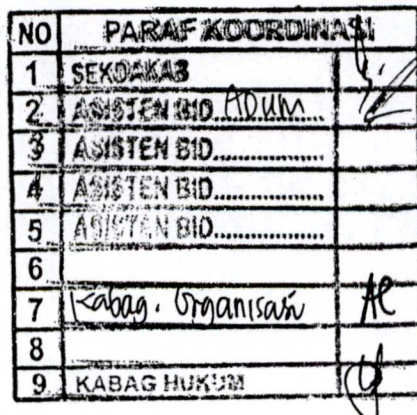 NO PARAF KOORDINASI
1 SEKDAKAB
2 ASISTEN BID. ADUM
3 ASISTEN BID..............
4 ASISTEN BID..............
5 ASISTEN BID..............
6
7 Kabag. Organisasi
8
9 KABAG HUKUM